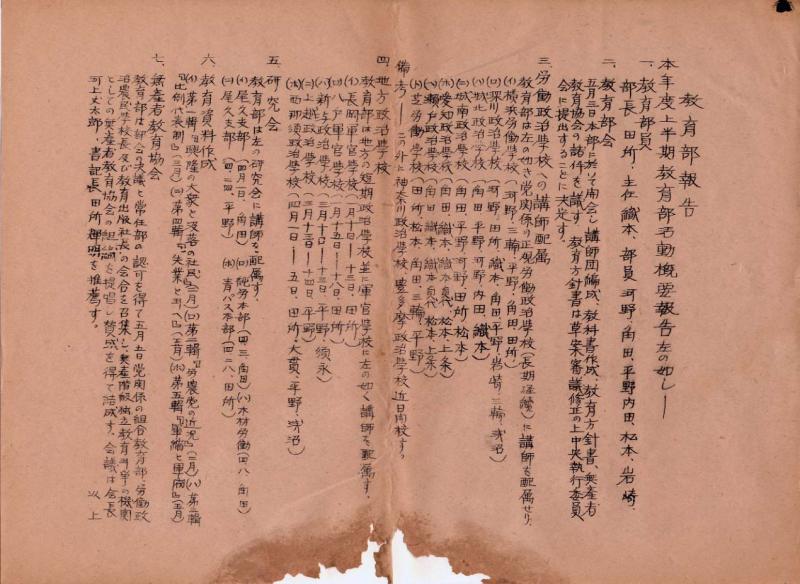 教育部報告
本年度上半期教育部活動概要報告左の如し——
一、教育部員
部長 田所、主任 織本、部員 河野、角田、平野、内田、松本、岩崎、
二、教育部会
五月三日本部に於いて開会し講師団編成、教科書作成、教育方針書、無産者
教育協会の諸件を議す、教育方針書は草案審議修正の上中央執行委員
会に提出することに決定す。
三、労働政治學校への講師配属
教育部は左の如き党関係の正規労働政治學校(長期継続)に講師を配属せり、
(イ)横浜労働學校(河野、三輪、平野、角田、田所)
(ロ)深川政治學校(河野、田所、織本、角田、平野、岩崎、三輪、浅沼)
(ハ)城北政治學校(角田、平野、河野、内田、織本)
(ニ)城南政治學校(角田、平野、河野、田所、松本)
(ホ)愛知政治學校(角田、織本、松本、上條)
(ヘ)瀬戸政治學校(角田、織本、松本、上條)
(ト)芝労働學校(田所、松本、角田、三輪、平野)
備考——この外に神奈川政治學校、豊多摩政治學校近日開校す。
四、地方政治學校
教育部は地方の短期政治學校並に軍官學校に左の如く講師を配属す。
(イ)長岡軍官學校(一月十日—十三日、田所)
(ロ)八戸軍官學校(一月十五日—十八日、田所)
(ハ)新友政治學校(三月十日—十三日、平野、須永)
(ニ)上越政治學校(三月十三日—十四日、平野)
(ホ)西那須政治學校(四月一日—五日、田所、大貫、平野、浅沼)
五、研究会
教育部は左の研究会に講師を配属す。
(イ)尾久支部(四、一、角田)(ロ)純労本部(四、三、角田)(ハ)木材労働(四、八、角田)
(ニ)尾久支部(四、二四、平野)(ホ)青バス本部(四、二八、田所)
六、教育資料作成
(イ)第一輯『興隆の大衆と没落の社民』(二月)(ロ)第二輯『労農党の近況』(二月)(ハ)第三輯
『比例代表制』(三月)(ニ)第四輯『失業と可へ』(五月)(ホ)第五輯『軍縮と軍備』(五月)
七、無産者教育協会
教育部は部会の決議と常任部の認可を得て五月五日党関係の組合教育部、労働政
治農民學校長及び教育出版社長の会合を召集し、無産階級独立教育事業の機関
としての無産者教育協会の組織を提唱し賛成を得て結成す。会議は会長
河上丈太郎、書記長田所輝明を推薦す。
以上